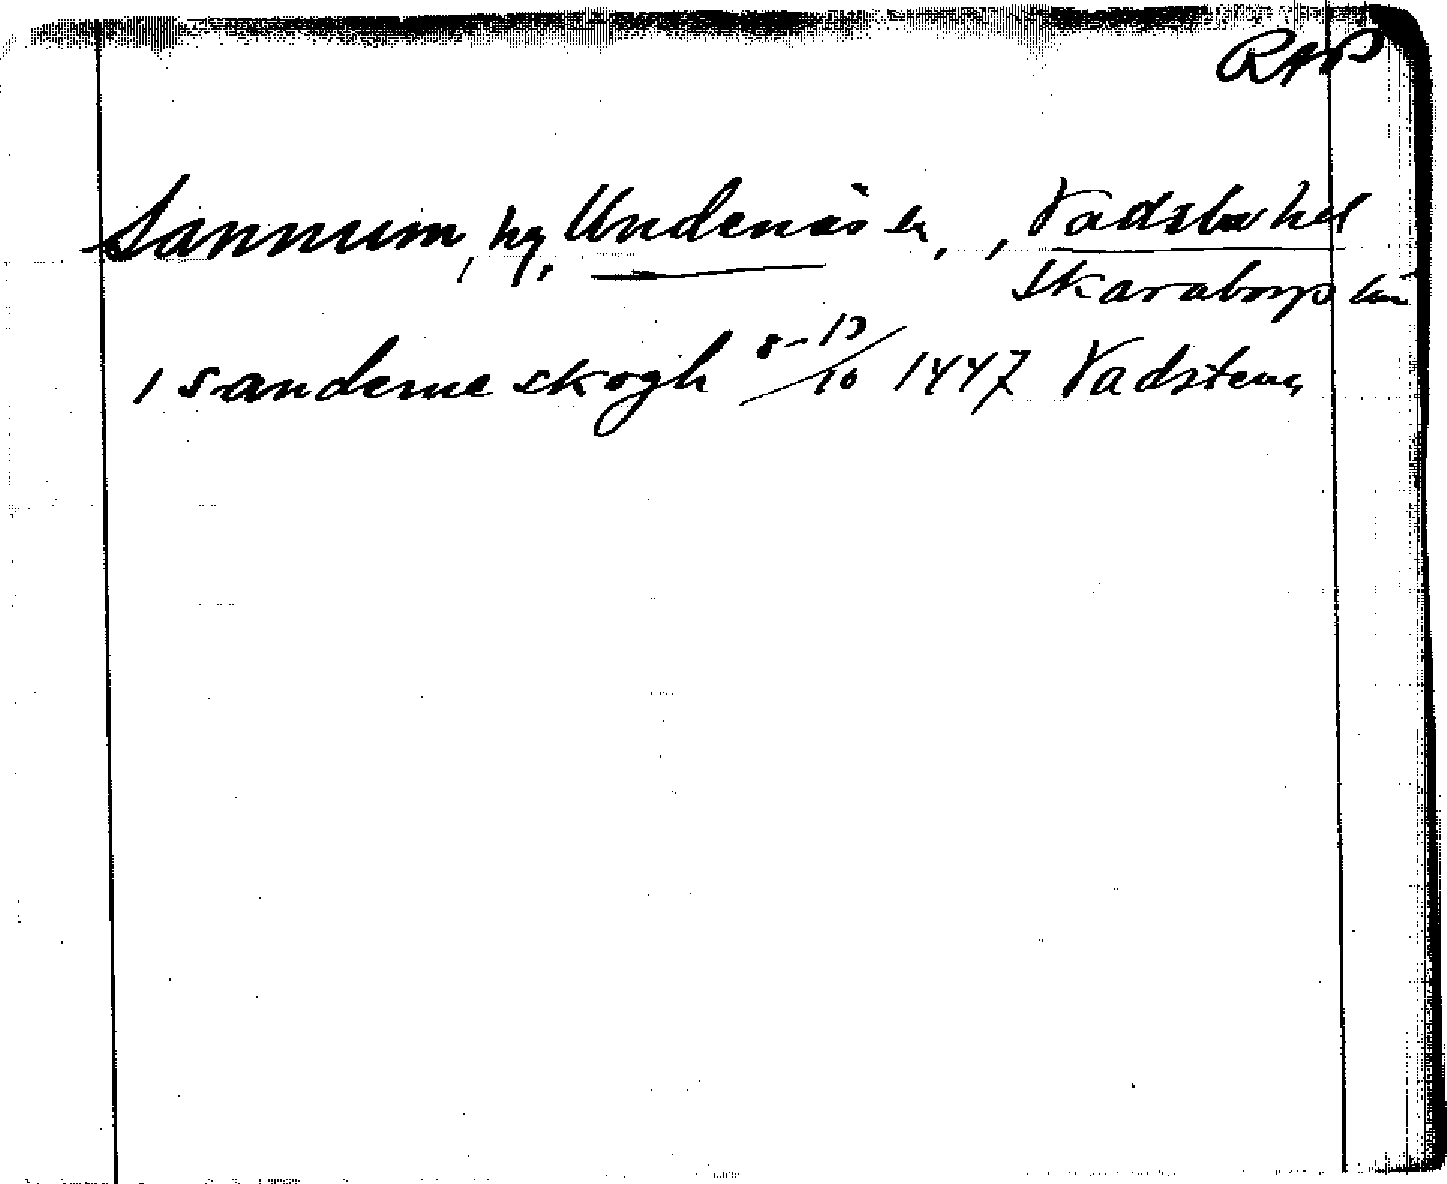 RAP
Sannum, by, Undenäs sn, , Vadsbo hd
Skaraborgs län
i sandeme skogh 8-13/10 1447 Vadstena